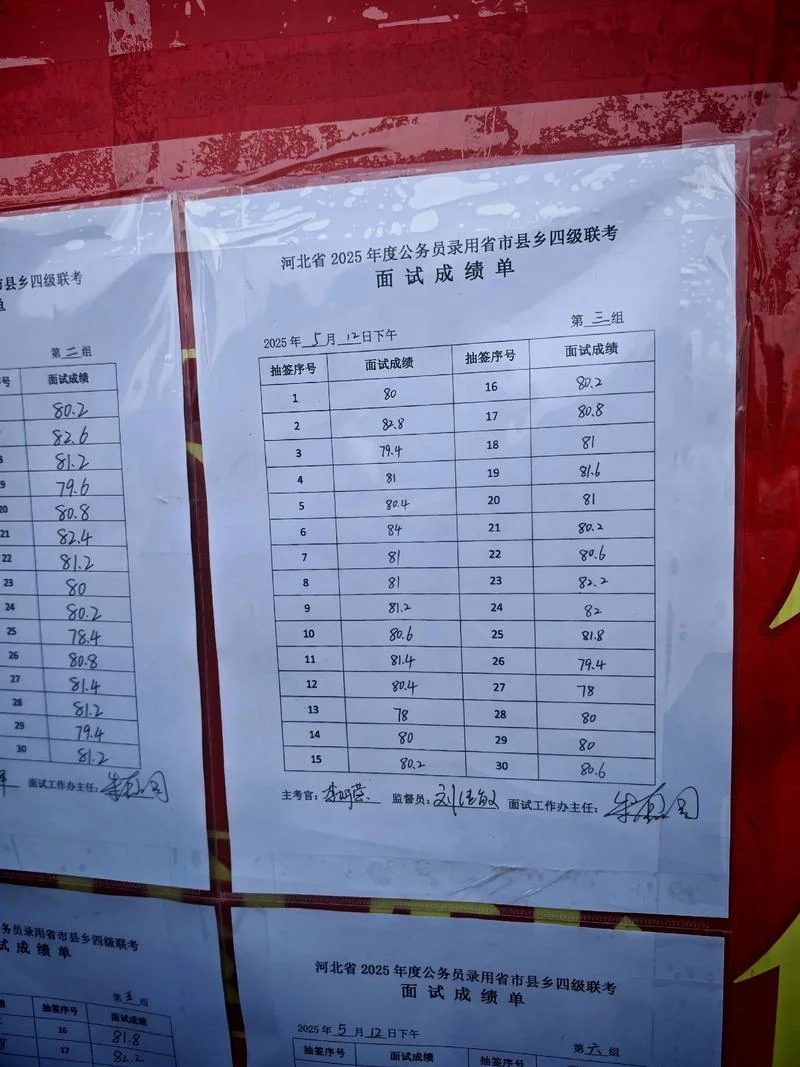 市县乡四级联考
单
第二组
号 面试成绩
80.2
82.6
81.2
79.6
20 80.8
21 82.4
22 81.2
23 80
24 80.2
25 78.4
26 80.8
27 81.4
28 81.2
29 79.4
30 81.2
面试工作办主任：
河北省2025年度公务员录用省市县乡四级联考
面试成绩单
2025年5月12日下午 第三组
抽签序号 面试成绩 抽签序号 面试成绩
1 80 16 80.2
2 82.8 17 80.8
3 79.4 18 81
4 81 19 81.6
5 80.4 20 81
6 84 21 80.2
7 81 22 80.6
8 81 23 82.2
9 81.2 24 82
10 80.6 25 81.8
11 81.4 26 79.4
12 80.4 27 78
13 78 28 80
14 80 29 80
15 80.2 30 80.6
主考官： 监督员： 面试工作办主任：
务员录用省市县乡四级联考
试成绩单
第五组
绩 抽签序号 面试成绩
16 81.8
17 82.2
河北省2025年度公务员录用省市县乡四级联考
面试成绩单
2025年5月12日下午 第六组
抽签序号 面试成绩 抽签序号 面试成绩